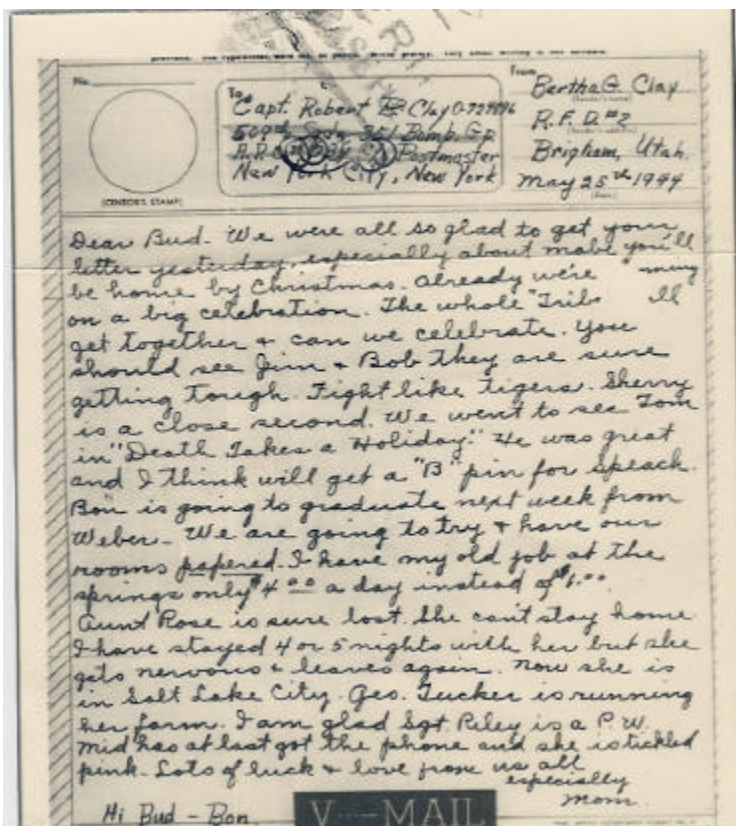 No.
[CENSOR'S STAMP]
To
Capt. Robert Clay
509th Sqdn 351 Bomb. Gp
Postmaster
New York City, New York
From
Bertha G. Clay
R.F.D. #2
Brigham, Utah.
May 25th 1944
Dear Bud. We were all so glad to get your
letter yesterday, especially about mabe you'll
be home by Christmas. Already we're
on a big celebration. The whole "Tribe"'ll
get together & can we celebrate. You
should see Jim & Bob they are sure
getting tough. Fight like tigers. Sherry
is a close second. We went to see Tom
in "Death Takes a Holiday." He was great
and I think will get a "B" pin for speack.
Bon is going to graduate next week from
Weber - We are going to try & have our
rooms papered. I have my old job at the
springs only $4 00 a day instead of
Aunt Rose is sure lost. She can't stay home.
I have stayed 4 or 5 nights with her but she
gets nervous & leaves again. Now she is
in Salt Lake City. Geo. Tucker is running
her farm. I am glad Sgt. Riley is a P.W.
Mid has at last got the phone and she is tickled
pink. Lots of luck & love from us all
especially
Mom
Hi Bud - Bon.
V---MAIL